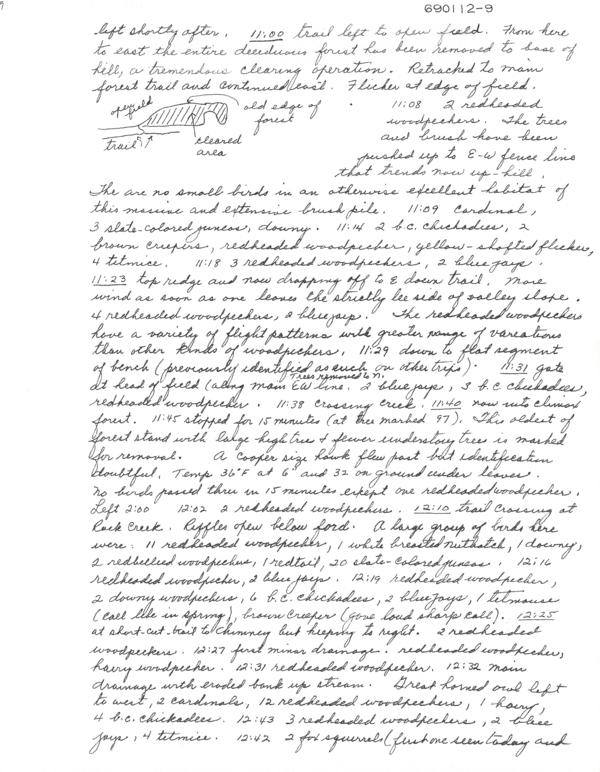 690112-9
left shortly after. 11:00 trail left to open field. From here
to east the entire deciduous forest has been removed to base of
hill, a tremendous clearing operation. Retracked to main
forest trail and continued east. Flicker at edge of field.
open field
old edge of
forest
trail
cleared
area
11:08 2 redheaded
woodpeckers. The trees
and brush have been
pushed up to E-W fence line
that trends now up-hill.
The are no small birds in an otherwise excellent habitat of
this massive and extensive brush pile. 11:09 cardinal,
3 slate-colored juncos, downy. 11:14 2 b.c. chickadees, 2
brown creepers, redheaded woodpecker, yellow-shafted flicker,
4 titmice. 11:18 3 redheaded woodpeckers, 2 blue jays.
11:23 top ridge and now dropping off to E down trail. More
wind as soon as one leaves the strictly lee side of valley slope.
4 redheaded woodpeckers, 2 bluejays. The redheaded woodpeckers
have a variety of flight patterns with greater range of variations
than other kinds of woodpeckers. 11:29 down to flat segment
of bench (previously identified as such on other trips). 11:31 gate
Trees removed to N.
at head of field (along main EW line. 2 blue jays, 3 b.c. chickadees,
redheaded woodpecker. 11:38 crossing creek. 11:40 now into climax
forest. 11:45 stopped for 15 minutes (at tree marked 97). This oldest of
forest stand with large high trees & fewer understory trees is marked
for removal. A Cooper size hawk flew past but identification
doubtful. Temp 36°F at 6' and 32 on ground under leaves.
No birds passed thru in 15 minutes except one redheaded woodpecker.
Left 2:00 12:02 2 redheaded woodpeckers. 12:10 trail crossing at
Rock Creek. Riffles open below ford. A large group of birds here
were: 11 redheaded woodpecker, 1 white breasted nuthatch, 1 downy,
2 redbellied woodpeckers, 1 redtail, 20 slate-colored juncos. 12:16
redheaded woodpecker, 2 blue jays. 12:19 redheaded woodpecker,
2 downy woodpeckers, 6 b.c. chickadees, 2 bluejays, 1 titmouse
(call like in spring), brown creeper (gave loud sharp call). 12:25
at short-cut trail to chimney but keeping to right. 2 redheaded
woodpeckers. 12:27 first minor drainage. redheaded woodpecker,
hairy woodpecker. 12:31 redheaded woodpecker. 12:32 main
drainage with eroded bank up stream. Great horned owl left
to west, 2 cardinals, 12 redheaded woodpeckers, 1 hairy,
4 b.c. chickadees. 12:43 3 redheaded woodpeckers, 2 blue
jays, 4 titmice. 12:42 2 fox squirrels (first one seen today and